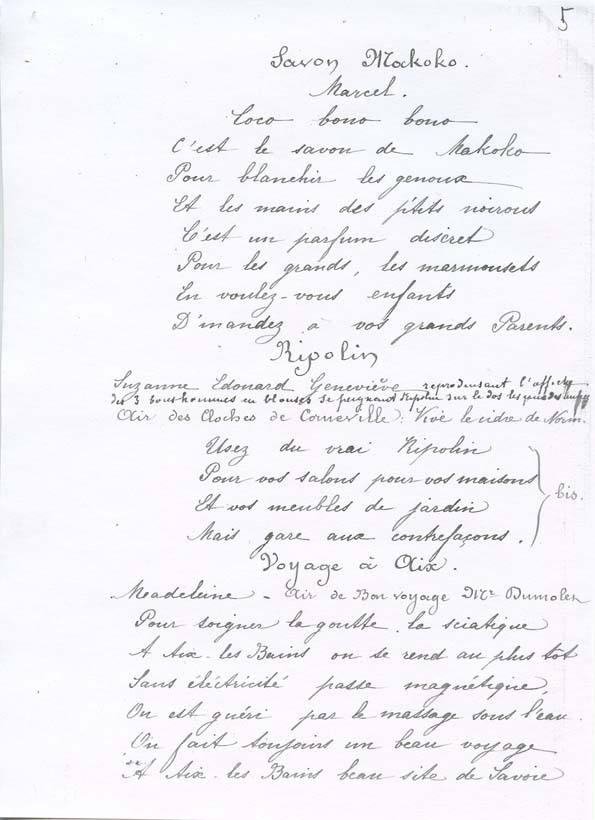 5
Savon Makoko.
Marcel.
Coco bono bono
C'est le savon de Makoko
Pour blanchir les genoux
Et les mains des p'tits noirous
C'est un parfum discret
Pour les grands, les marmousets
En voulez-vous enfants
D'mandez à vos grands Parents.
Ripolin
Suzanne Edouard Geneviève reproduisant l'affiche
des 3 bonshommes en blouses se peignant Ripolin sur le dos les uns des
Air des Cloches de Corneville: Vive le cidre de Norm.
Usez du vrai Ripolin
Pour vos salons pour vos maisons
Et vos meubles de jardin
Mais gare aux contrefaçons.
bis.
Voyage à Aix.
Madeleine - Air de Bon voyage Mr Dumolet
Pour soigner la goutte, la sciatique
A Aix-les Bains on se rend au plus tot
Sans éléctricité passe magnétique,
On est guéri par le massage sous l'eau.
On fait toujours un beau voyage
A Aix-les Bains beau site de Savoie